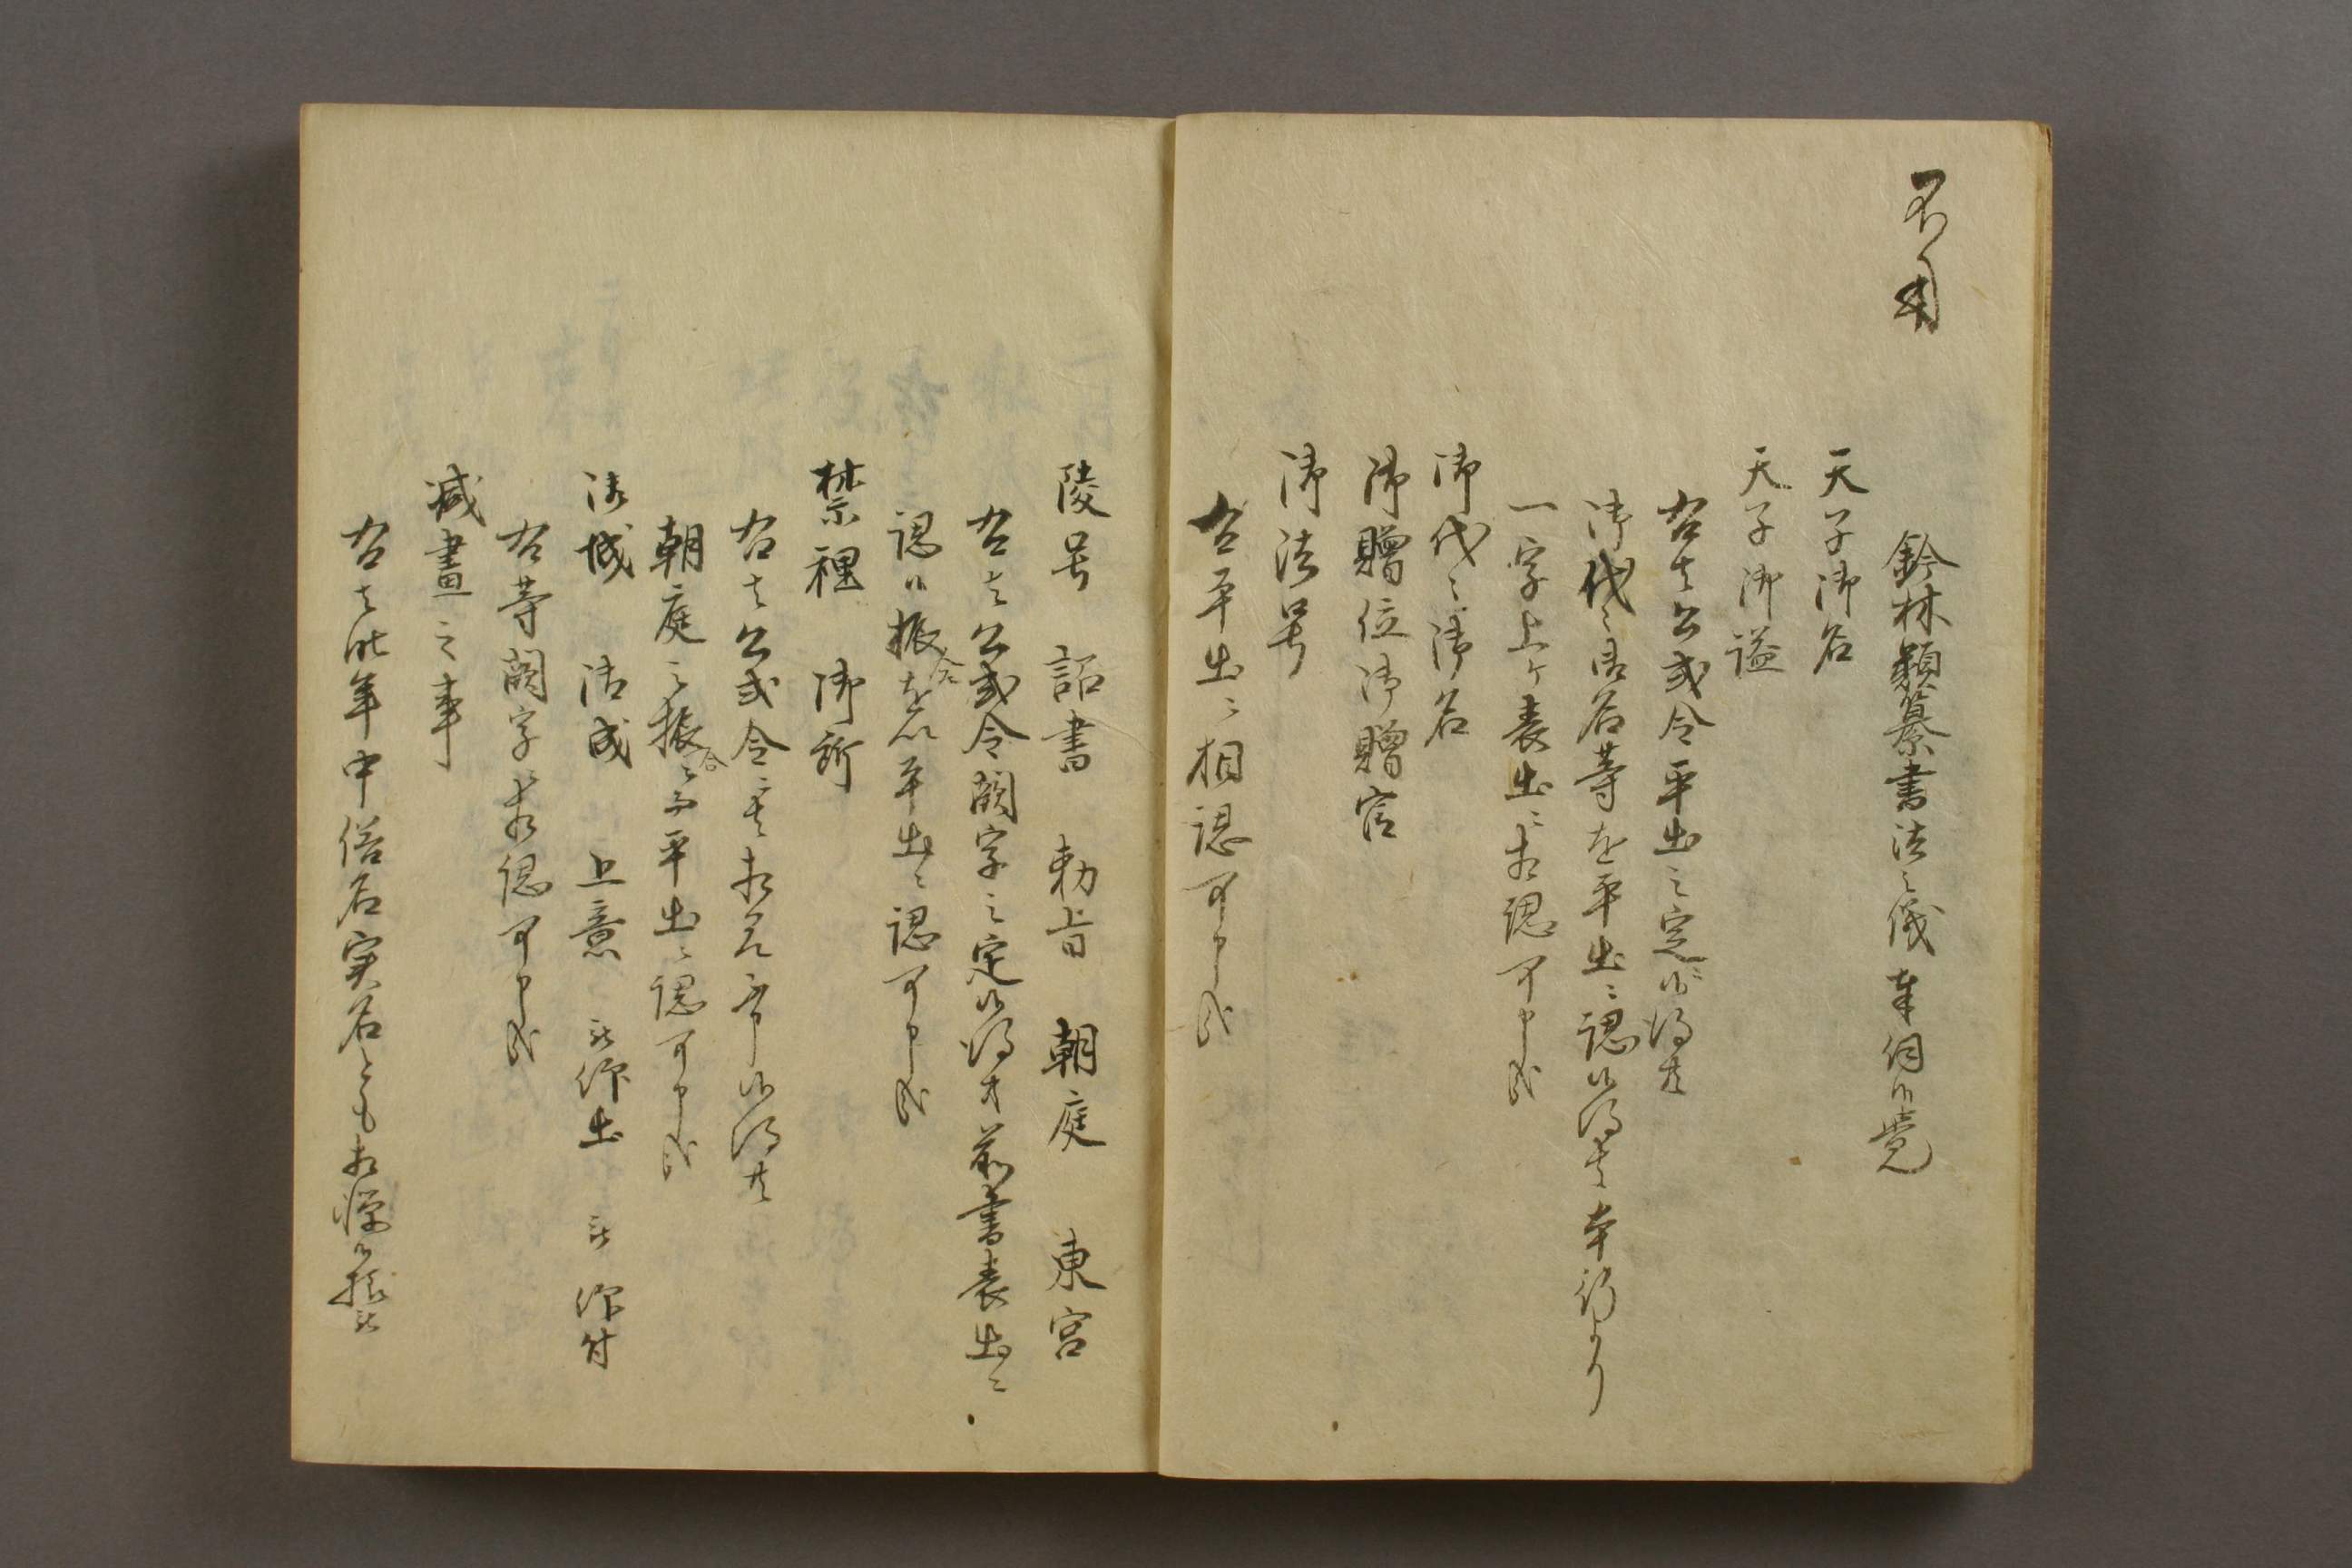 不用
鈐林類纂書法之儀奉伺候覚
天子御名
天子御謚
右者公式令平出之定ニ御坐候得共
御代々御名等を平出ニ認候得者本行より
一字上ケ表出ニ相認可申哉
御代々御名
御贈位御贈官
御法号
右平出ニ相認可申哉
陵号 詔書 勅旨 朝庭 東宮
右者公式令闕字之定候得共前書表出ニ
認候振合を以平出ニ認可申哉
禁裡 御所
右者公式令ニ者相見不申候得共
朝庭之振合ニ而平出ニ認可申哉
御城 御成 上意 被仰出 被仰付
右等闕字ニ相認可申哉
減畫之事
右者此年中俗名実名とも相憚候様被